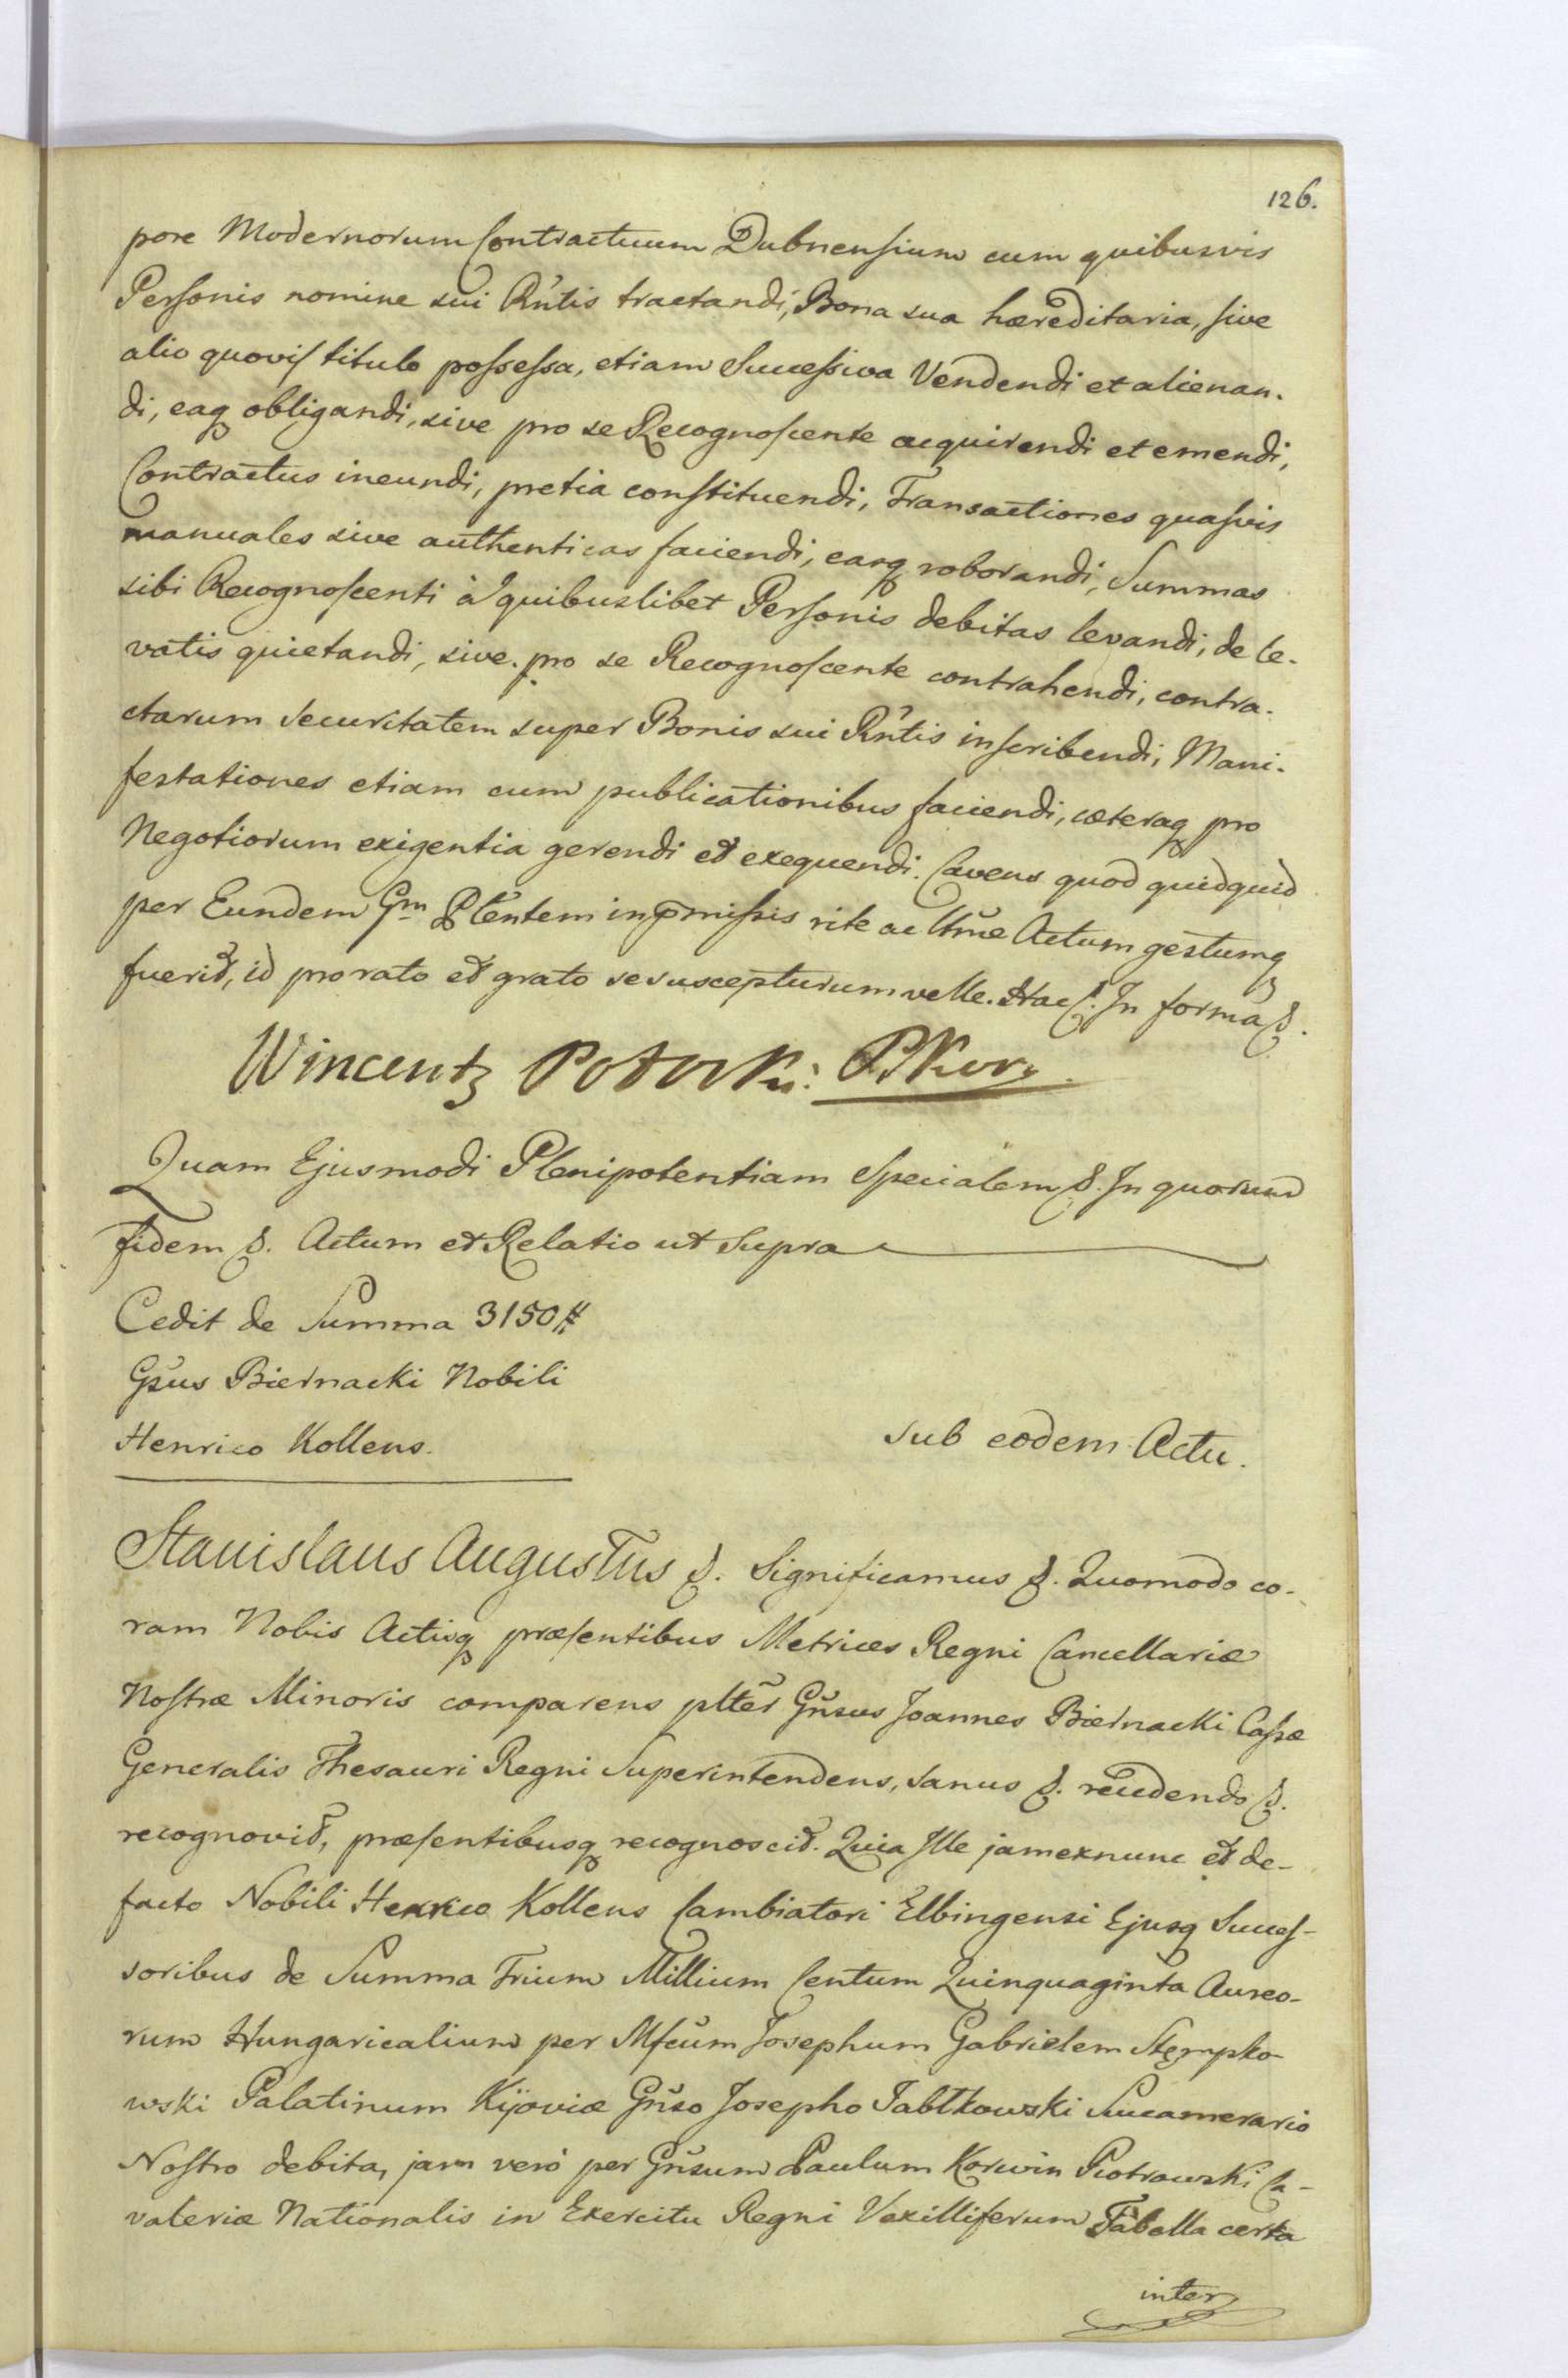 126.
pore Modernorum Contractuum Dubnensium cum quibusvis
Personis nomine sui Rñtis tractandi, Bona sua hæreditaria, sive
alio quovis titulo possessa, etiam Successiva Vendendi et alienan-
di, eaq obligandi, sive pro se Recognoscente acquirendi et emendi,
Contractus ineundi, pretia constituendi, Transactiones quasvis
manuales sive authenticas faciendi, easq roborandi, Summas
sibi Recognoscenti à quibuslibet Personis debitas levandi, de le-
vatis quietandi, sive pro se Recognoscente contrahendi, contra-
ctarum securitatem super Bonis sui Rñtis inscribendi, Mani-
festationes etiam cum publicationibus faciendi, cæteraq pro
Negotiorum exigentia gerendi et exequendi. Cavens quod quidquid
per Eundem Gm Pltentem in pmissis rite ac ltme Actum gestumq
fuerit, id pro rato et grato se suscepturum velle. Hac &. In forma &.
Wincenty Potocki: PKory.
Quam Ejusmodi Plenipotentiam Specialem &. In quorum
fidem &. Actum et Relatio ut Supra
Cedit de Summa 3150 #
Gsus Biernacki Nobili
Henrico Kollens.
sub eodem Actu.
Stanislaus Augustus &. Significamus &. Quomodo co-
ram Nobis Actisq præsentibus Metrices Regni Cancellariæ
Nostræ Minoris comparens plter Gñsus Joannes Biernacki Cassæ
Generalis Thesauri Regni Superintendens, sanus &. recedendo &.
recognovit, præsentibusq recognoscit. Quia Ille jam ex nunc et de-
facto Nobili Henrico Kollens Cambiatori Elbingensi Ejusq Succes-
soribus de Summa Trium Millium Centum Quinquaginta Aureo-
rum Hungaricalium per Mfcum Josephum Gabrielem Stęmpko-
wski Palatinum Kijoviæ Gñso Josepho Jabłkowski Succamerario
Nostro debita, jam verò per Gñsum Paulum Korwin Piotrowski Ca-
valeriæ Nationalis in Exercitu Regni Vexilliferum Tabella certa
inter